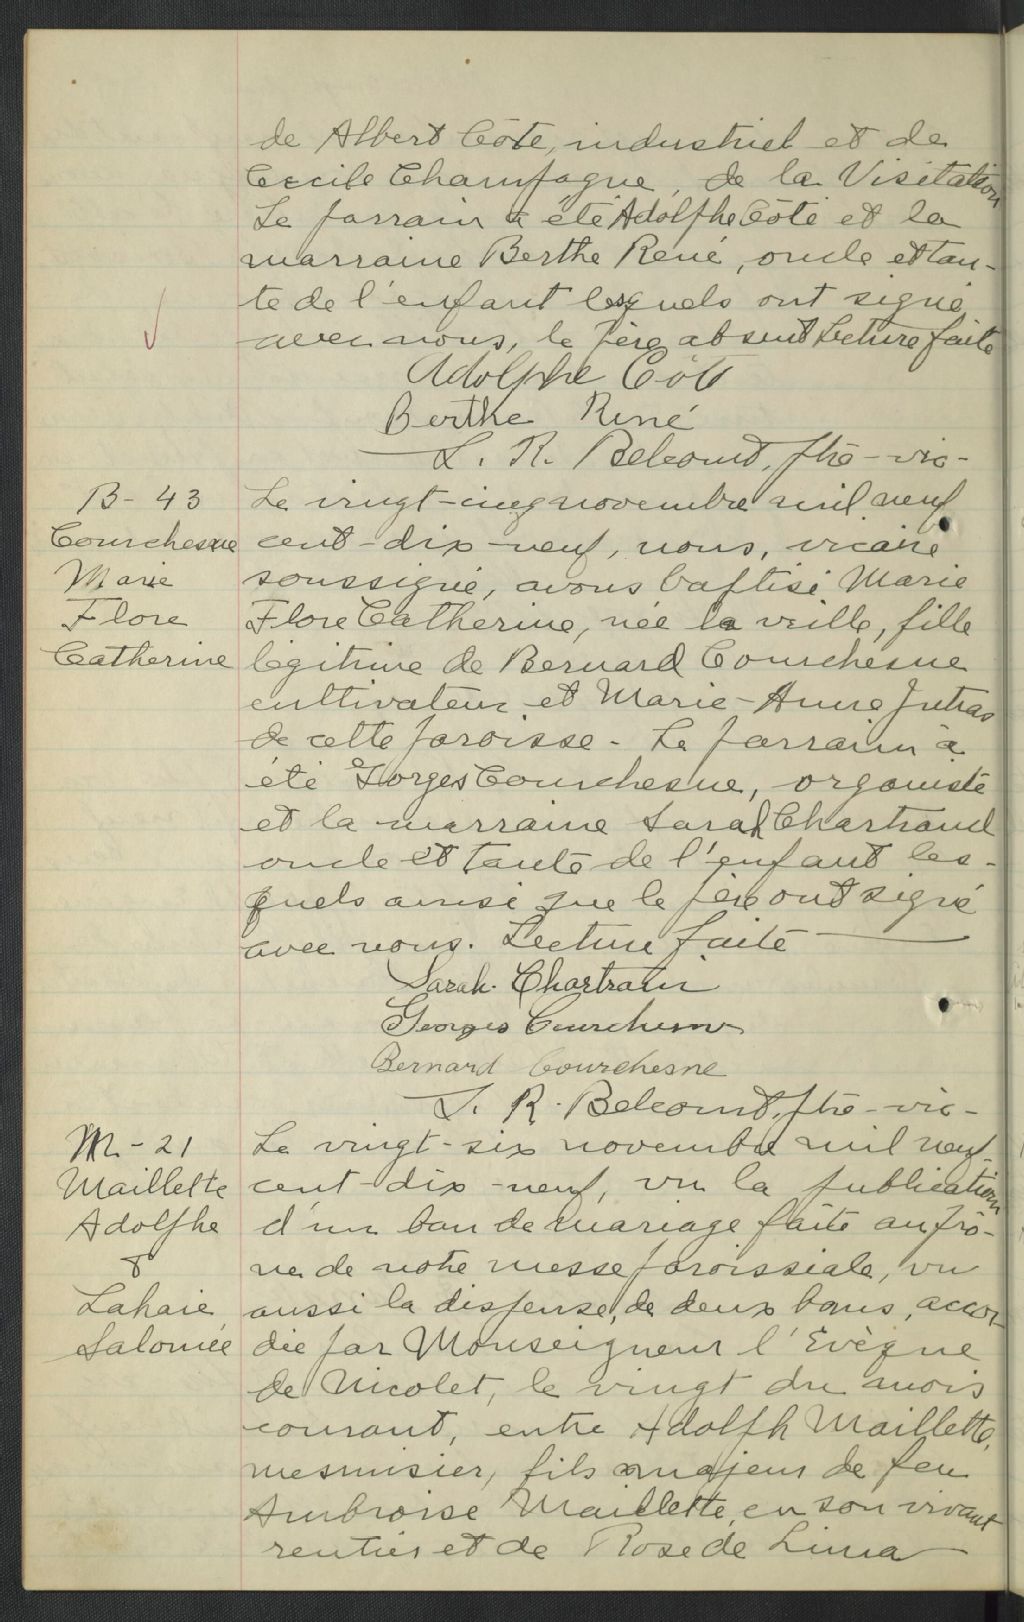 de Albert Côté, industriel et de
Cécile Champagne, de la Visitation
Le parrain a été Adolphe Côté et la
marraine Berthe René, oncle et tan-
te de l'enfant lesquels ont signé
avec nous, le père absent Lecture faite
Adolphe Côté
Berthe René
L. R. Belcourt, ptre - vic -
B - 43
Courchesne
Marie
Flore
Catherine
Le vingt-cinq novembre mil neuf
cent-dix-neuf, nous, vicaire
soussigné, avons baptisé Marie
Flore Catherine, née la veille, fille
légitime de Bernard Courchesne
cultivateur et Marie-Anne Jutras
de cette paroisse - Le parrain a
été Gorges Courchesne, organiste
et la marraine Sarah Chartrand
oncle et tante de l'enfant les-
quels ainsi que le père ont signé
avec nous. Lecture faite
Sarah Chartrain
Georges Courchesne
Bernard Courchesne
L. R. Belcourt, ptre - vic -
M - 21
Maillette
Adolphe
&
Lahaie
Salomée
Le vingt-six novembre mil neuf-
cent-dix-neuf, vu la publication
d'un ban de mariage faite au prô-
ne de notre messe paroissiale, vu
aussi la dispense, de deux bans, accor
dée par Monseigneur l'Evèque
de Nicolet, le vingt du mois
courant, entre Adolph Maillette,
mesnusier, fils majeur de feu
Ambroise Maillette, en son vivant
rentier et de Rose de Lima